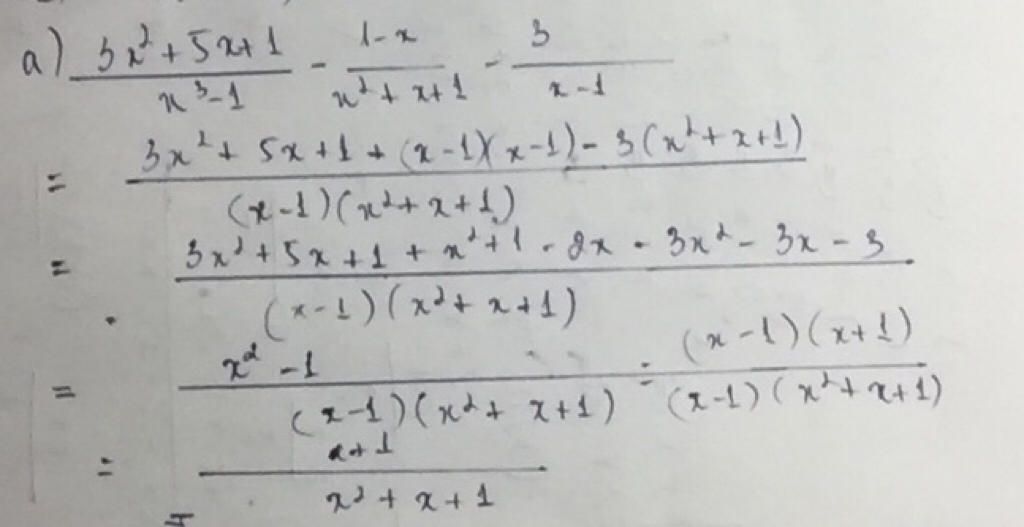 a) (3x² + 5x + 1)/(x³ - 1) - (1 - x)/(x² + x + 1) - 3/(x - 1)
= (3x² + 5x + 1 + (x - 1)(x - 1) - 3(x² + x + 1))/((x - 1)(x² + x + 1))
= (3x² + 5x + 1 + x² + 1 - 2x - 3x² - 3x - 3)/((x - 1)(x² + x + 1))
= (x² - 1)/((x - 1)(x² + x + 1)) = ((x - 1)(x + 1))/((x - 1)(x² + x + 1))
= (x + 1)/(x² + x + 1)